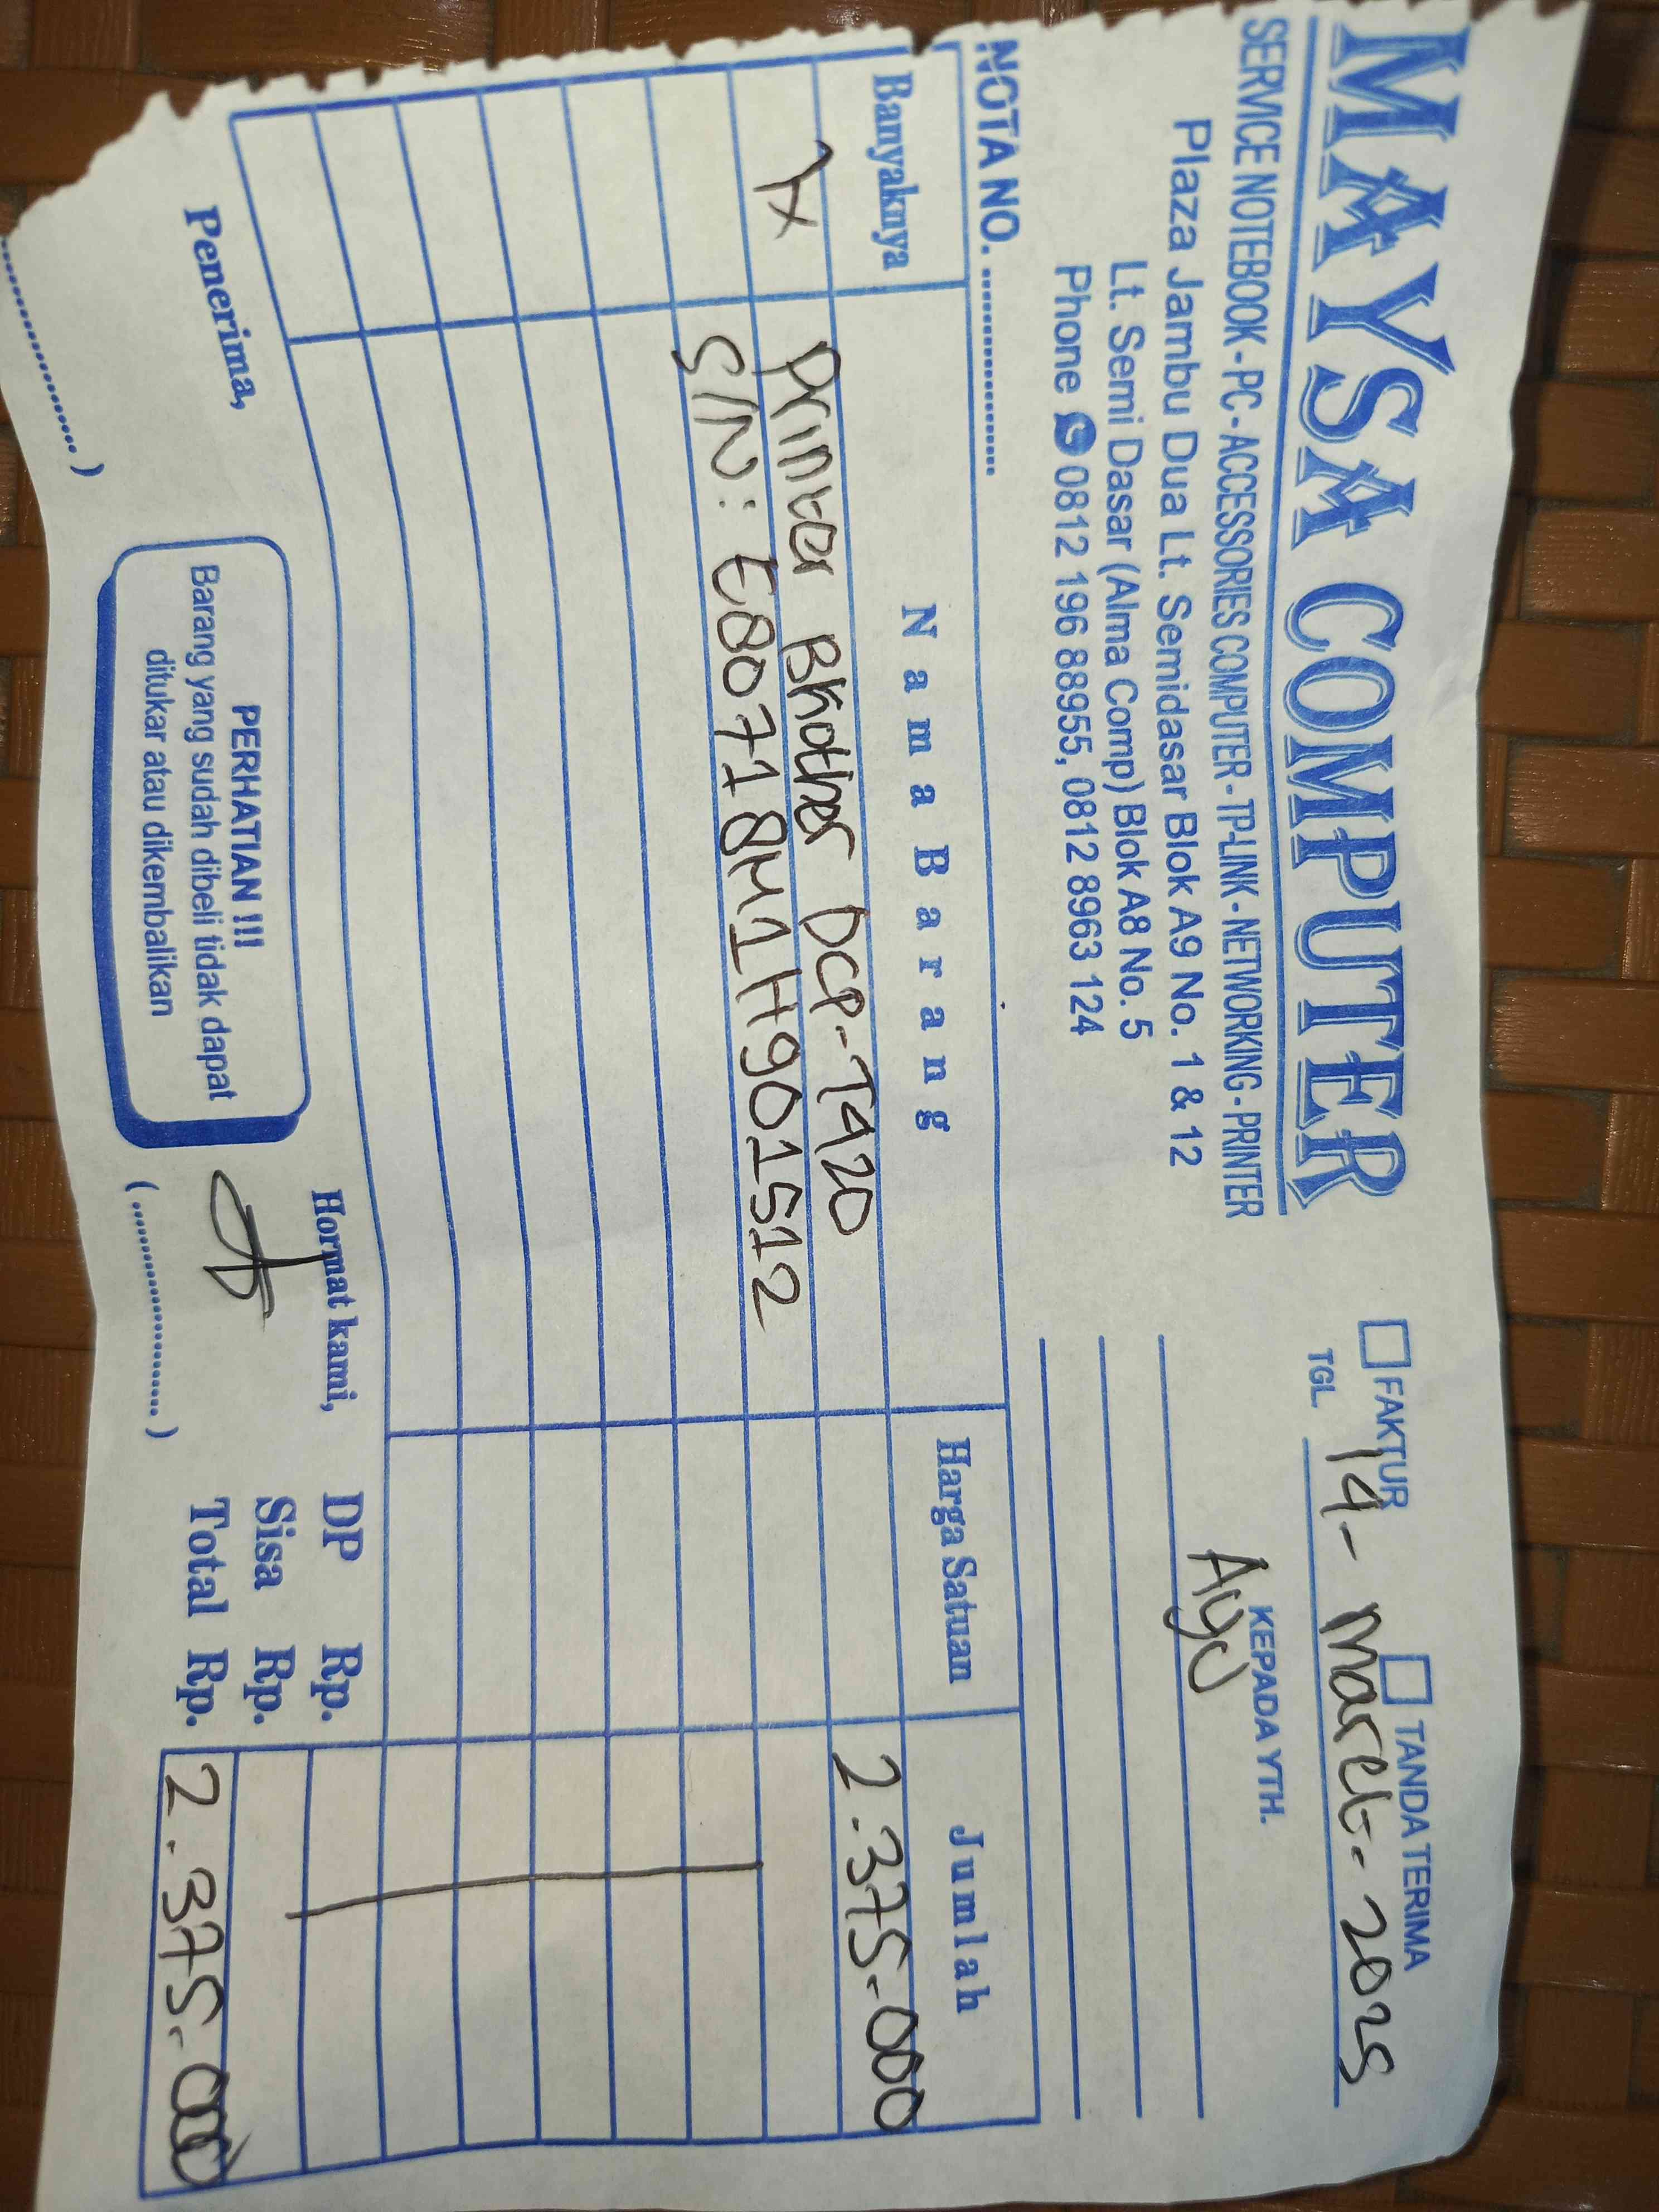 MAYSA COMPUTER
SERVICE NOTEBOOK - PC - ACCESSORIES COMPUTER - TP-LINK - NETWORKING - PRINTER
Plaza Jambu Dua Lt. Semidasar Blok A9 No. 1 & 12
Lt. Semi Dasar (Alma Comp) Blok A8 No. 5
Phone 0812 196 88955, 0812 8963 124
FAKTUR TANDA TERIMA
TGL. 14 - Maret - 2025
KEPADA YTH.
Ayu
NOTA NO. ....................
Banyaknya Nama Barang Harga Satuan Jumlah
1x Printer Brother DCP-T420 2.375.000
S/N: E80718M1H901512
Penerima, Hormat kami, DP Rp.
Sisa Rp.
Total Rp. 2.375.000
PERHATIAN !!!
Barang yang sudah dibeli tidak dapat
ditukar atau dikembalikan
....................) (....................)